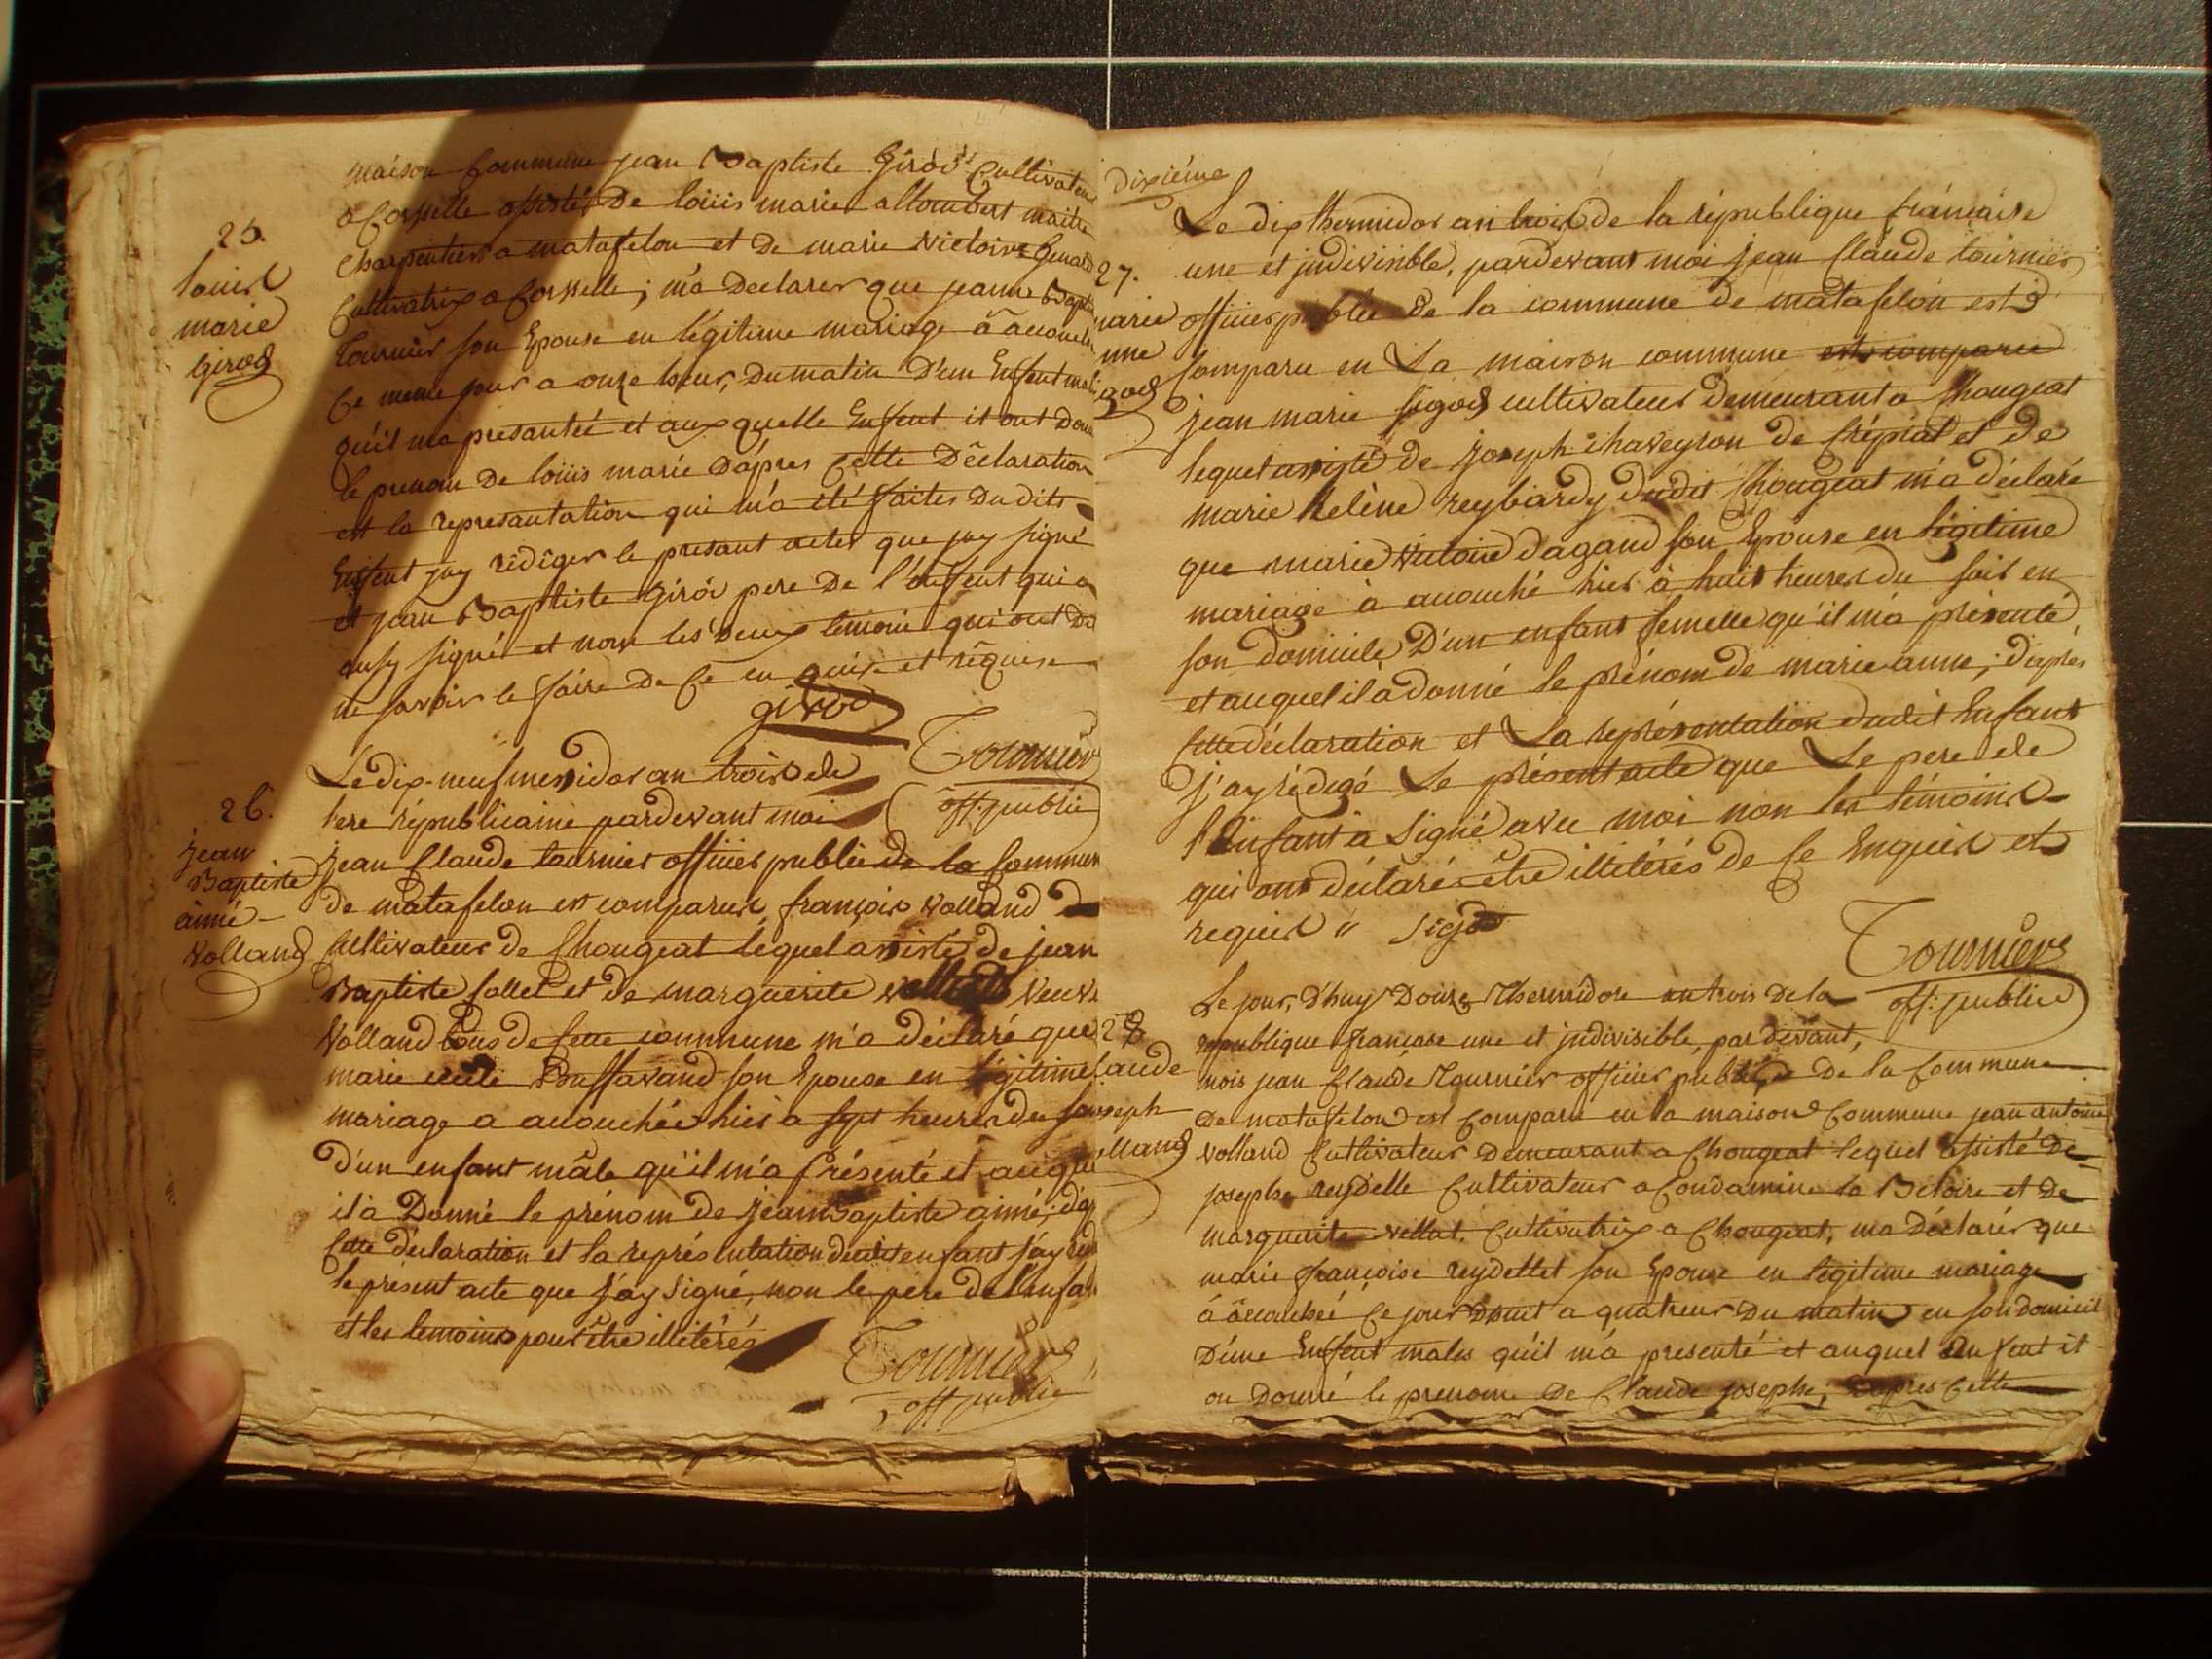 25.
louis
marie
Girod
maison Commune jean Baptiste Girod Cultivateur
a Corselle assisté De loüis marie allombert maitre
Charpentier a matafelon et De marie Victoire
Cultivatrix a Corselle; m'a Declarer que jeanne Bapti
Tournier son Epouse en légitime mariage à acouché
Ce meme jour a onze heur, Du matin D'un Enfent
qu'il ma presantée et aux quelle Enfent it ont Don
le prenom De loüis marie D'apres Cette Déclaration
est la represantation qui m'a été faites Du dits
Enfent jay rédiger le presant actes que jay signé
et jean Baptiste Girod pere De l'enfent qui a
ausy signé et non les Deux temoin qui ont De
ne savoir le faire De Ce en quise et réquise
girod
Tournier
off. public
26.
jean
Baptiste
aimé
Volland
Le dix-neuf messidor an trois de
l'ere républicaine pardevant moi
jean Claude tournier officier public de la Commun
de matafelon est comparus françois volland
Cultivateur de Chougeat lequel assisté de jean
Baptiste follet et de marguerite veuve
Volland tous de Cette commune m'a déclaré que
marie Buffavand son Epouse en légitime
mariage a acouchée hier a sept heures du soir
d'un enfant mâle qu'il m'a présenté et auque
il à Donné le prénom de jean Baptiste aimé; d'ap
Cette déclaration et la représentation dudit enfant j'ay
le présent acte que j'ay signé, non le père de l'enfan
et les temoins pour être illitérés
Tournier
off public
Dixième
27.
marie
nne
god
Le dix thermidor an trois de la république française
une et jndivisible, pardevant moi jean Claude tournier
officier public de la commune de matafelon est
Comparu en La maison commune est comparu
jean marie sigod cultivateur demeurant a Chougeat
lequel assisté de joseph Chaveyron de Crépiat et de
marie helène reybardy dudit Chougeat m'a déclaré
que marie victoire dagand son Epouse en légitime
mariage à acouché hier à huit heures du soir en
son domicile D'un enfant femelle qu'il m'a présenté,
et auquel il a donné le prénom de marie anne; d'après
Cette déclaration et La représentation dudit Enfant
j'ay rédigé Le présent acte que Le pere de
l'Enfant a Signé avec moi non les témoins
qui ont déclaré être illitérés de Ce Enquis et
requis " Sigod
Tournier
off. public
28
laude
oseph
olland
Le jour, D'huy Douze Thermidore an trois De la
republique française une et jndivisible, par devant,
mois jean Claude Tournier officier public De la Commune
De matafelon est Comparu en la maison Commune jean antoine
volland Cultivateur Demeurant a Chougeat lequel assisté De
josephe reydelle Cultivateur a Condamine la Beloire et De
marguerite villat Cultivatrix a Chougeat, ma Déclarér que
marie françoise reydellet son Epouse en légitime mariage
á acouchée Ce jour Dhuit a quatreur Du matin en son Domicil
D'une Enfent males qu'il m'à presenté et auquel Enfent it
on Donné le prenom De Claude josephe; D'apres Cette